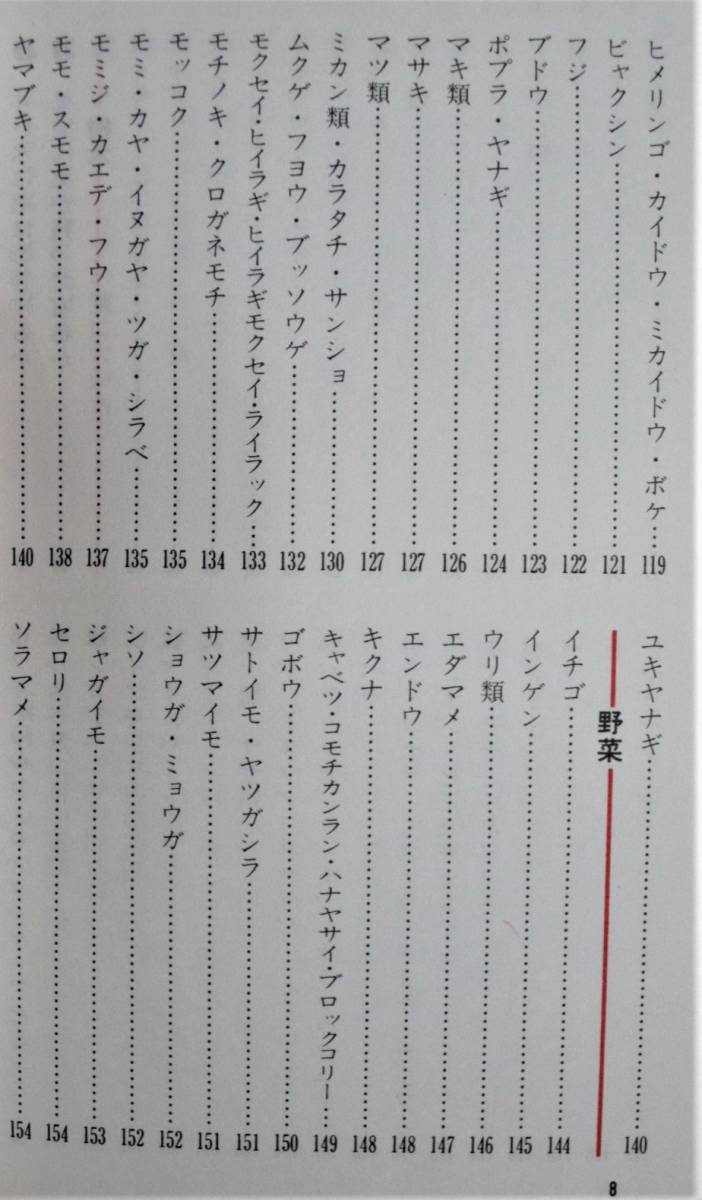 ヒメリンゴ・カイドウ・ミカイドウ・ボケ…119
ビャクシン…121
フジ…122
ブドウ…123
ポプラ・ヤナギ…124
マキ類…126
マサキ…127
マツ類…127
ミカン類・カラタチ・サンショ…130
ムクゲ・フヨウ・ブッソウゲ…132
モクセイ・ヒイラギ・ヒイラギモクセイ・ライラック…133
モチノキ・クロガネモチ…134
モッコク…135
モミ・カヤ・イヌガヤ・ツガ・シラベ…135
モミジ・カエデ・フウ…137
モモ・スモモ…138
ヤマブキ…140
ユキヤナギ…140
野菜
イチゴ…144
インゲン…145
ウリ類…146
エダマメ…147
エンドウ…148
キクナ…148
キャベツ・コモチカンラン・ハナヤサイ・ブロックコリー…149
ゴボウ…150
サトイモ・ヤツガシラ…151
サツマイモ…151
ショウガ・ミョウガ…152
シソ…152
ジャガイモ…153
セロリ…154
ソラマメ…154
8